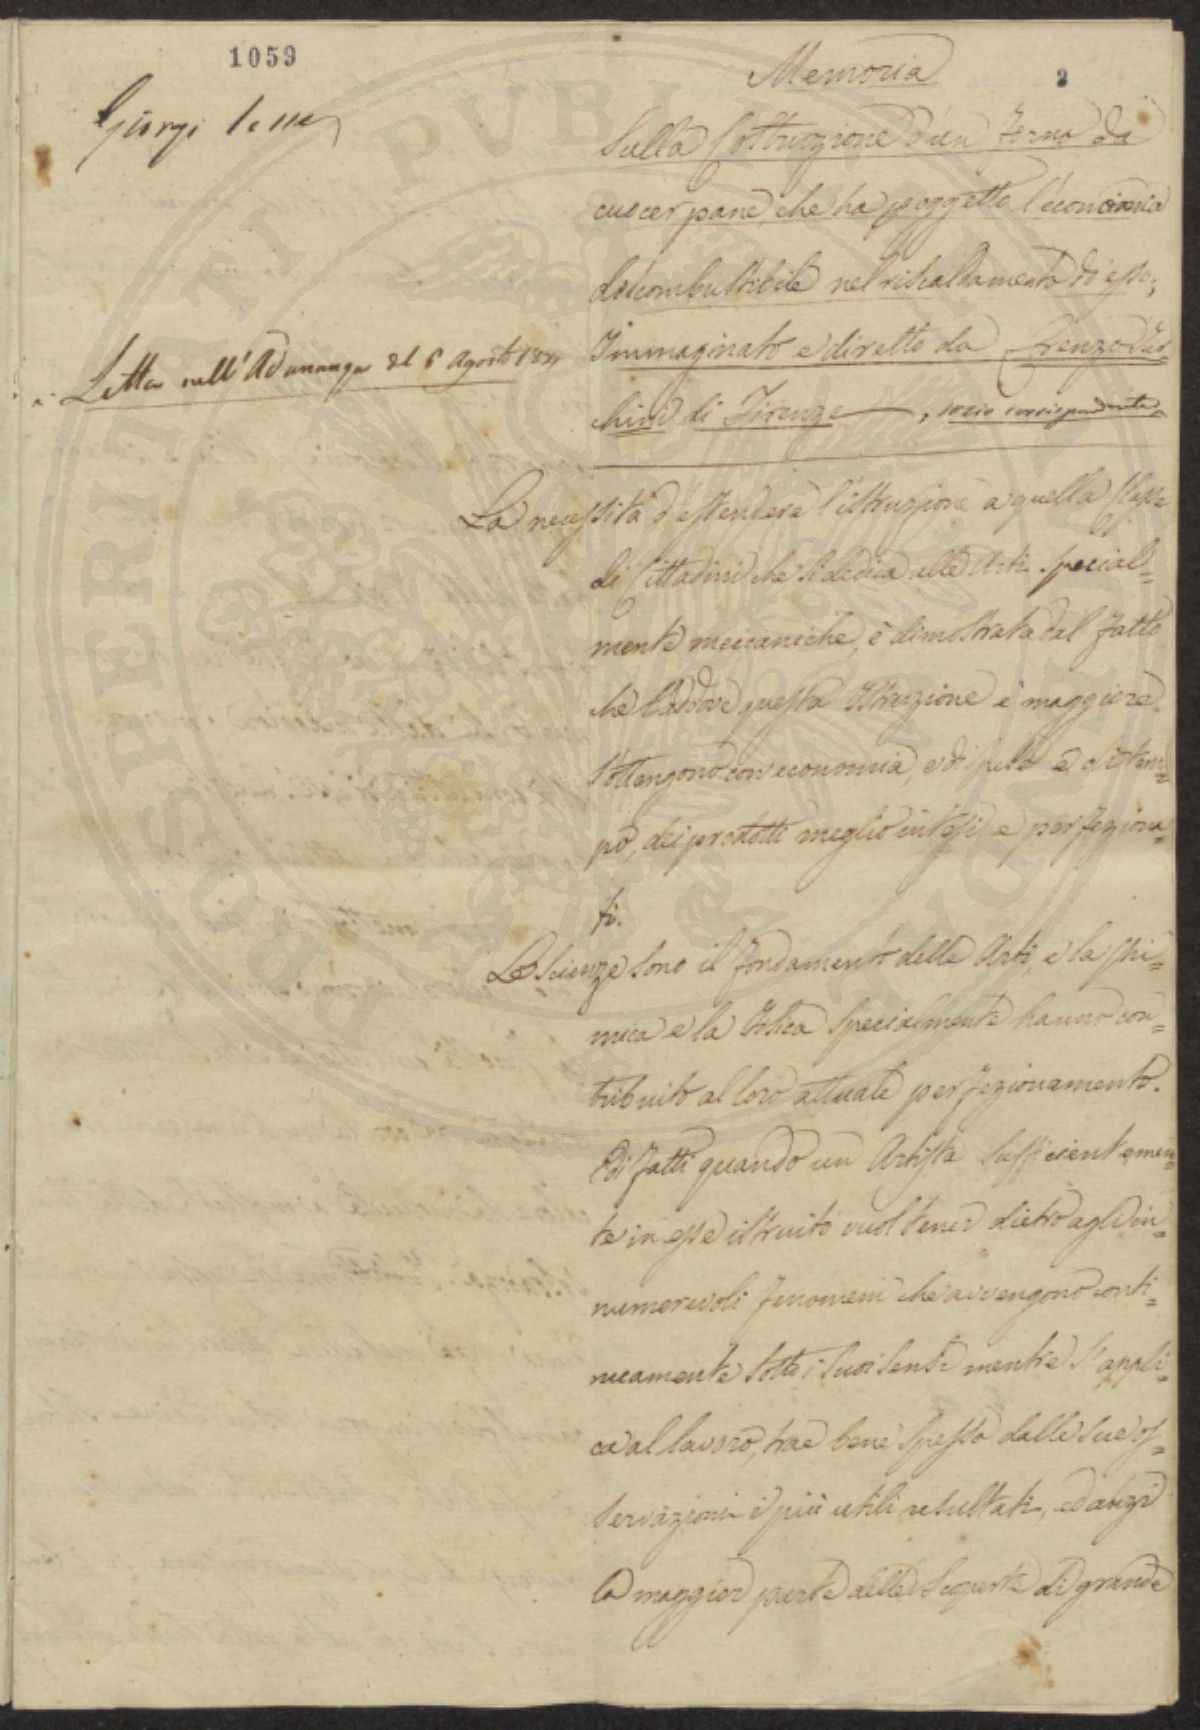 1059
2
Giorgi
Letta nell'Adunanza del 6 Agosto
Memoria
Sulla Costruzione d'un Forno da
cuocer pane, che ha p oggetto l'economia
del combustibile nel riscaldamento di esso,
Immaginato e diretto da Lorenzo Tur=
chini di Firenze, socio corrispondente
La necessità d'estendere l'istruzione a quella Classe
di Cittadini che si dedica alle Arti special=
mente meccaniche, è dimostrata dal fatto
che laddove questa Istruzione è maggiore
s'ottengono con economia, e di spese e di tem=
po, dei prodotti meglio intesi e perfeziona=
ti.
Le Scienze sono il fondamento delle Arti, e la Chi=
mica e la Fisica specialmente hanno con=
tribuito al loro attuale perfezionamento.
Di fatti quando un Artista sufficientemen=
te in esse istruito vuol tener dietro agli in=
numerevoli fenomeni che avvengono conti=
nuamente sotto i suoi sensi mentre s'appli=
ca al lavoro, trae bene spesso dalle sue os=
servazioni i più utili resultati, ed anzi
la maggior parte delle scoperte di grande
PROSPERITATI PVBLICAE